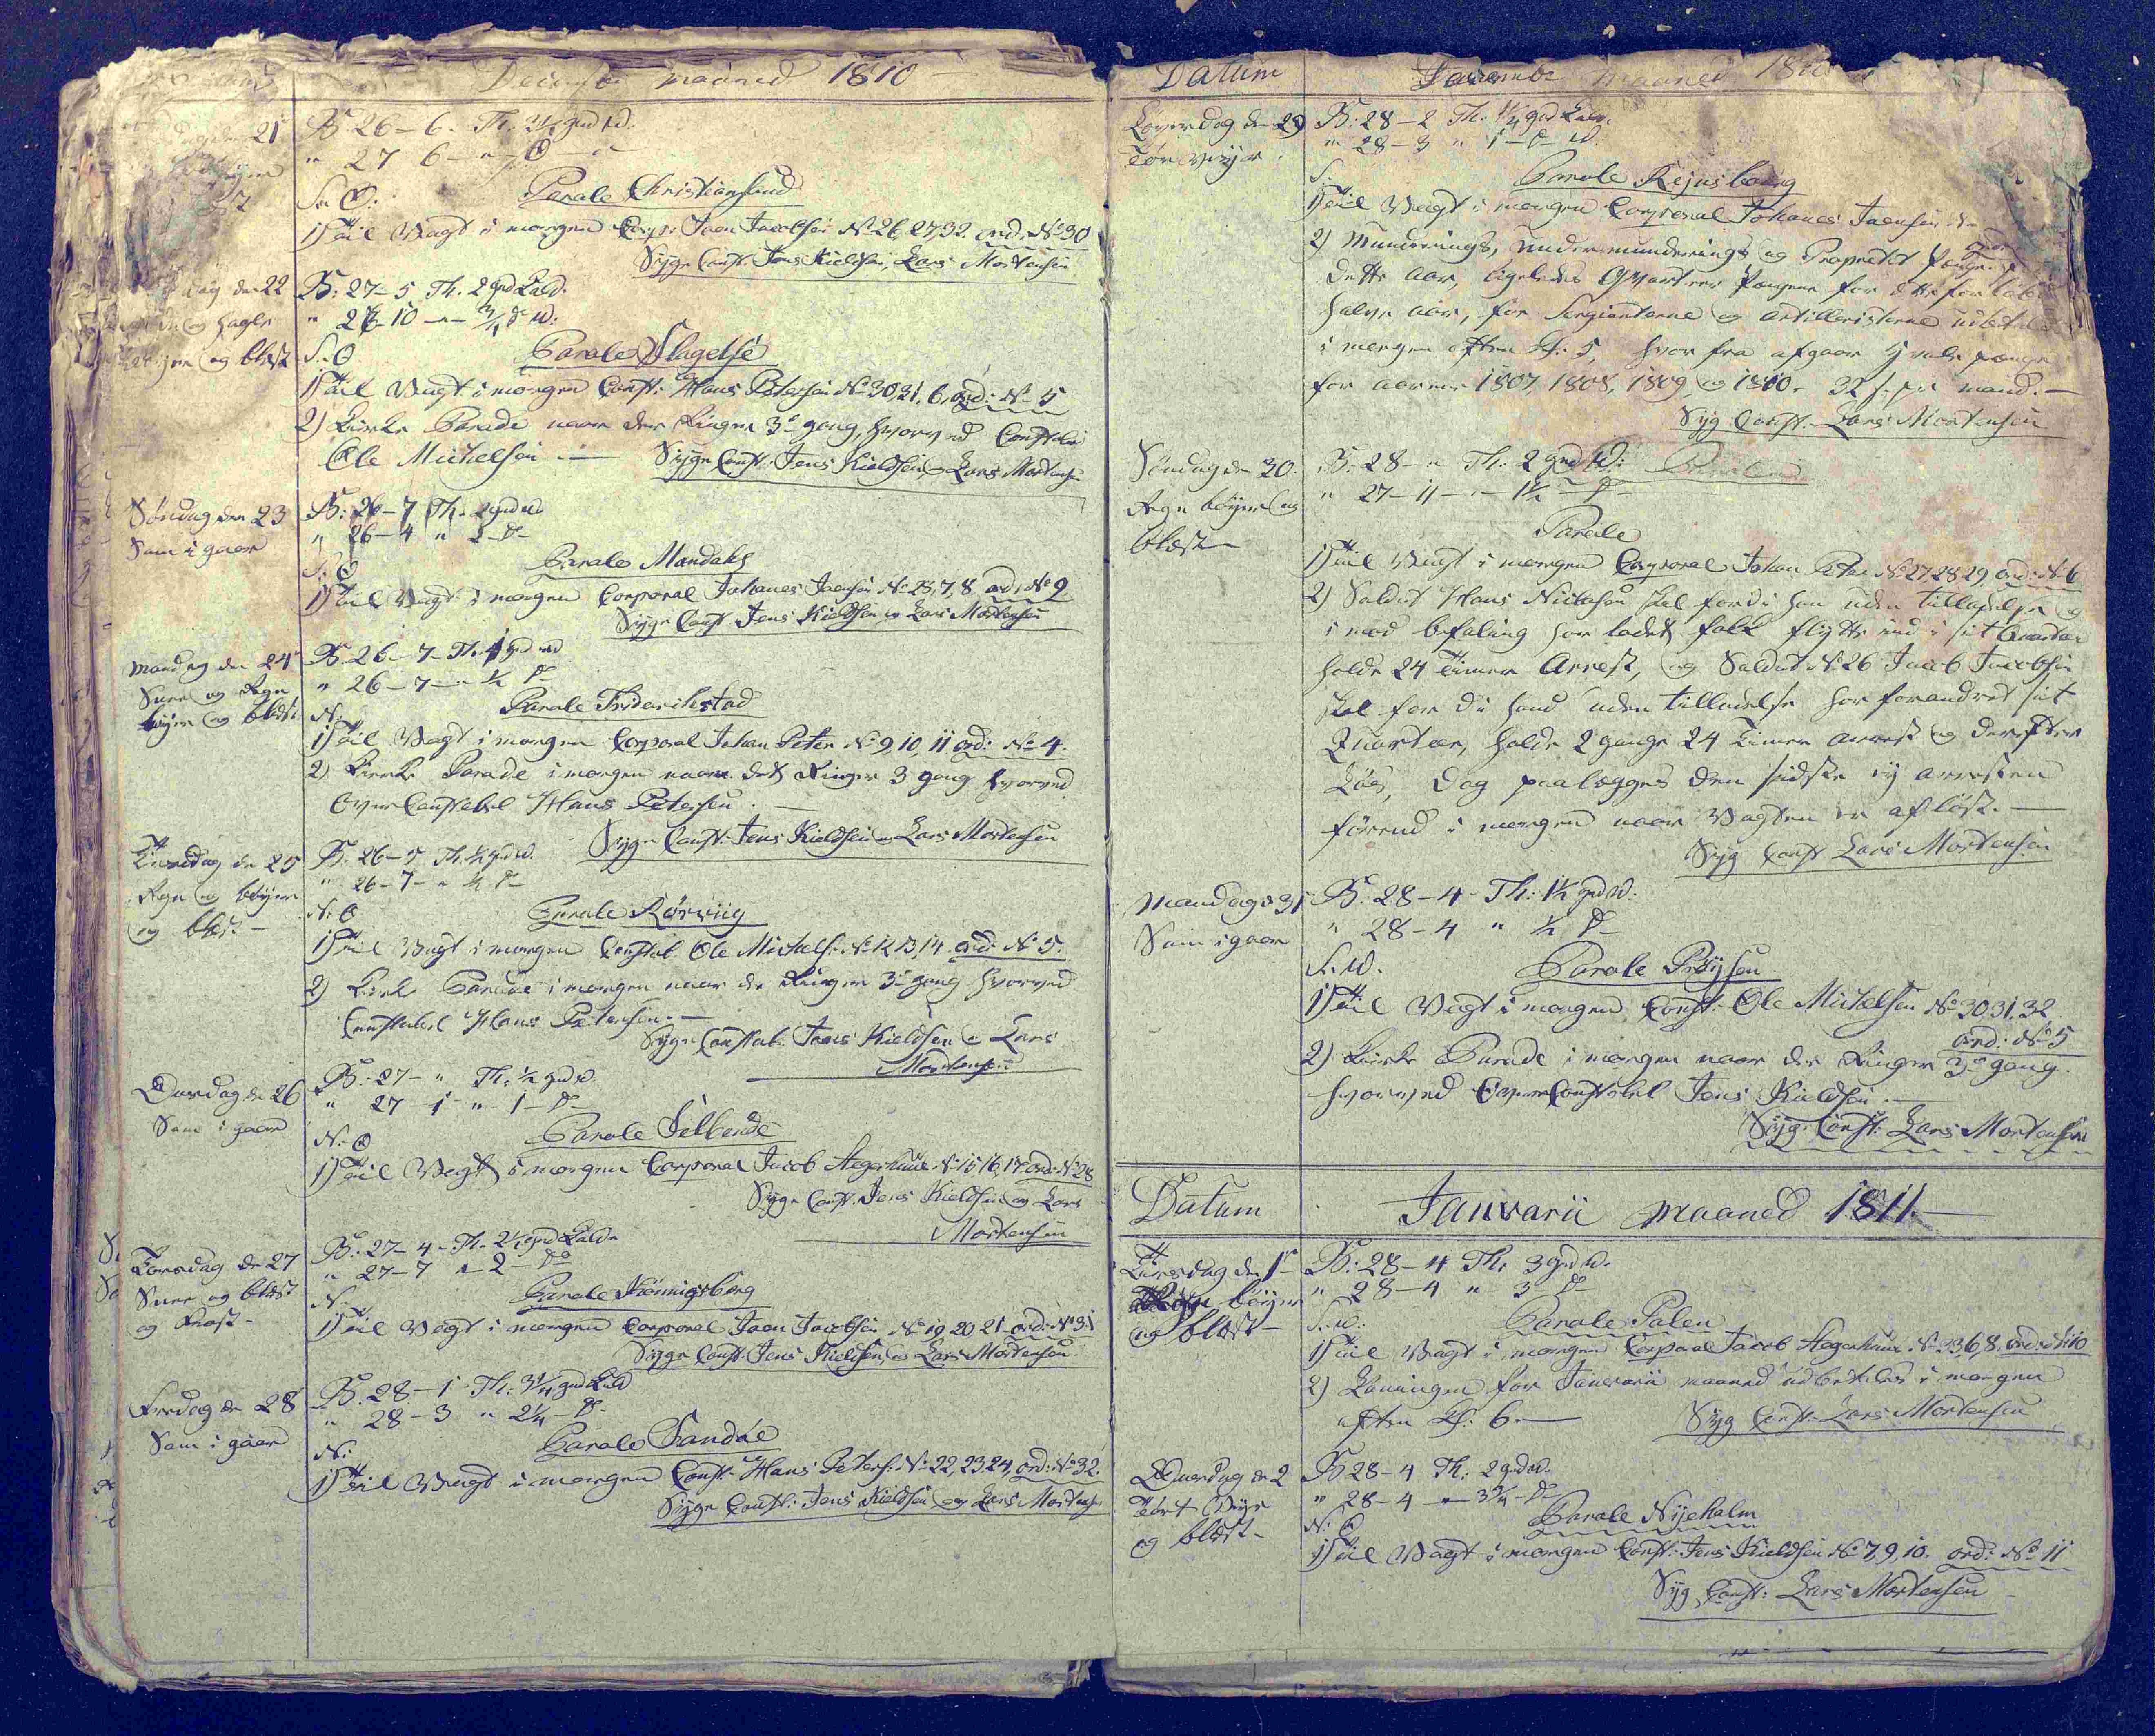 December maaned 1810
den 21
B 26-6- Th. 3½ grd W.
" 27 6 - " - O - "
S. O:
Parole Christiansund
1) Til Vagt i morgen Corp: Joen Jacobsen No 26, 27, 32. ord: No 30
Syge Const: Jens Kieldsen, Lars Mortensen
dag den 22
og Hagle
og blæst
B: 27-5 Th. 2 grd Kuld.
S. O
Parole Slagelse
1) Til Vagt i morgen Const: Hans Petersen No 30, 31, 6, ord: No 5
2) Kirke Parade naar der Ringer 3de gang, hvorved Constabel
Ole Michelsen. — Syge Const: Jens Kieldsen og Lars Mortensen
Søndag den 23
Som i gaar
B: 26-7 Th. 2 grd W.
" 26-4 " 2 do
S: O
Parole Mandahl
1) Til Vagt i morgen Corporal Johanes Joensen No 23, 7, 8 ord: No 9
Syge Const: Jens Kieldsen og Lars Mortensen
Mandag den 24
Snee og Regn
bøyer og blæst
B. 26-7- Th. 1 grd W
" 26-7-" ½ do
N.
Parole Friderichstad
1) Til Vagt i morgen Corporal Johan Peter No 9, 10, 11 ord: No 4.
2) Kirke Parade i morgen naar det Ringer 3 gang hvorved
Over Constabel Hans Petersen. —
Syge Const: Jens Kieldsen og Lars Mortensen
Tirsdag den 25
Regn og bøyer
og blæst -
B. 26-5 Th. ½ grd W.
" 26-7- " ½ do
N: O
Parole Rørviig
1) Til Vagt i morgen Constab Ole Michels: No 12 13, 14 ord: No 5.
2) Kirke Parade i morgen naar der Ringer 3de gang hvorved
Constabel Hans Petersen. —
Syge Constab: Jens Kieldsen og Lars
Mortensen
Onsdag den 26
Som i gaar
B: 27- " Th: ½ grd W.
" 27-1 " 1- do
N: O
Parole
1) Til Vagt i morgen Corporal Jacob Aegerhuus No 15 16, 17 ord: No 28
Syge Const: Jens Kieldsen og Lars
Mortensen
Torsdag den 27
Snee og blæst
og Frost -
B: 27-4- Th- 2½ grd Kuld.
" 27-7 " 2- do
N.
Parole Kønnigsberg
1) Til Vagt i morgen Corporal Joen Jacobsen No 19 20 21 ord: No 31
Syge Const: Jens Kieldsen, og Lars Mortensen
Fredag den 28
Som i gaar
B. 28-1- Th: 3¼ grd Kuld
" 28-3 " 2¼- do
N:
Parole Sandøe
1) Til Vagt i morgen Const: Hans Peters: No 22, 23 24, ord: No 32.
Syge Const: Jens Kieldsen og Lars Mortensen
Datum
December maaned 1810
Løverdag den 29
Tør Veyr.
B: 28-2 Th. ¼ grd Kuld.
" 28-3 " 1- do W.
S.
Parole Rejnsborg
1) Til Vagt i morgen Corporal Johanes Joensen
2) Munderings, under munderings og Proprietet Penge for
dette aar, ligeledes Qvarteer Pengene for dette forløbne
halve aar, for Sergianterne og Artilleristerne udbetales
i morgen aften Kl. 5, hvor fra afgaar penge
for aarene 1807, 1808, 1809, og 1810. 32 s. pr mand. —
Syg Const. Lars Mortensen
Søndag den 30.
Regn bøyer og
blæst
B: 28-" Th: 2 grd W:
" 27-11-" 1½ - do
Parole
1) Til Vagt i morgen Corporal Johan Peter No 27 28 29 ord: No 6
2) Soldat Hans Nielsen skal fordi han uden tilladelse og
i mod befaling har ladet folk flytte ind i sit Quarter
holde 24 Timer Arrest, og Soldat No 26 Jacob Jacobsen
skal for di hand uden tilladelse har forandret sit
Quarteer, holde 2 gange 24 Timer arrest og derefter
Løes, Dog paalægges den sidste ej arresten
førend i morgen naar Vagten er afløst. —
Syg Const Lars Mortensen
Mandag d 31
Som i gaar
B: 28-4- Th: 1½ grd W:
" 28-4 " ½ do
S. W.
Parole Prøysen
1) Til Vagt i morgen Const: Ole Michelsen No 30, 31, 32.
ord: No 5
2) Kirke Parade i morgen naar der Ringer 3de gang.
hvorved Over Constabel Jens Kieldsen. —
Syg: Const: Lars Mortensen
Datum
Januarii maaned 1811 —
Tirsdag den 1te
bøyer
og blæst -
B: 28-4 Th: 3 grd W.
" 28-4 " 3 do
S. W.
Parole Polen
1) Til Vagt i morgen Corporal Jacob Aegerhuus No 23, 6, 8, ord: No 10
2) Lønningen for Januarii maaned udbetales i morgen
aften Kl. 6. —
Syg Const. Lars Mortensen
Onsdag den 2
Tørt Veyr
og blæst -
B 28-4 Th: 2 grd W.
" 28-4 " 3¼ do
N: O
Parole Nyeholm
1) Til Vagt i morgen Const: Jens Kieldsen No 7, 9, 10. ord: No 11
Syg Const: Lars Mortensen